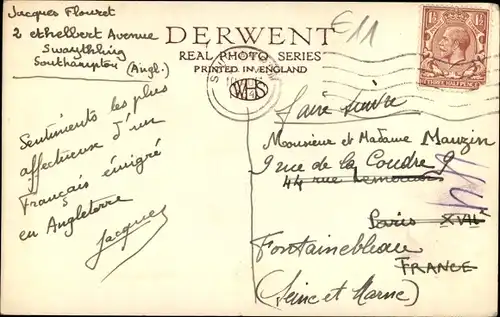 Jacques Flouret
2 ethelbert Avenue
Swaythling
Southampton (Angl.)
DERWENT
REAL PHOTO SERIES
PRINTED IN ENGLAND
€11
Sentiments les plus
affectueux d'un
Français émigré
en Angleterre
Jacques
faire suivre
Monsieur et Madame Mauzin
9 rue de la Coudre 9
44 rue
Paris XVII
Fontainebleau
FRANCE
(Seine et Marne)